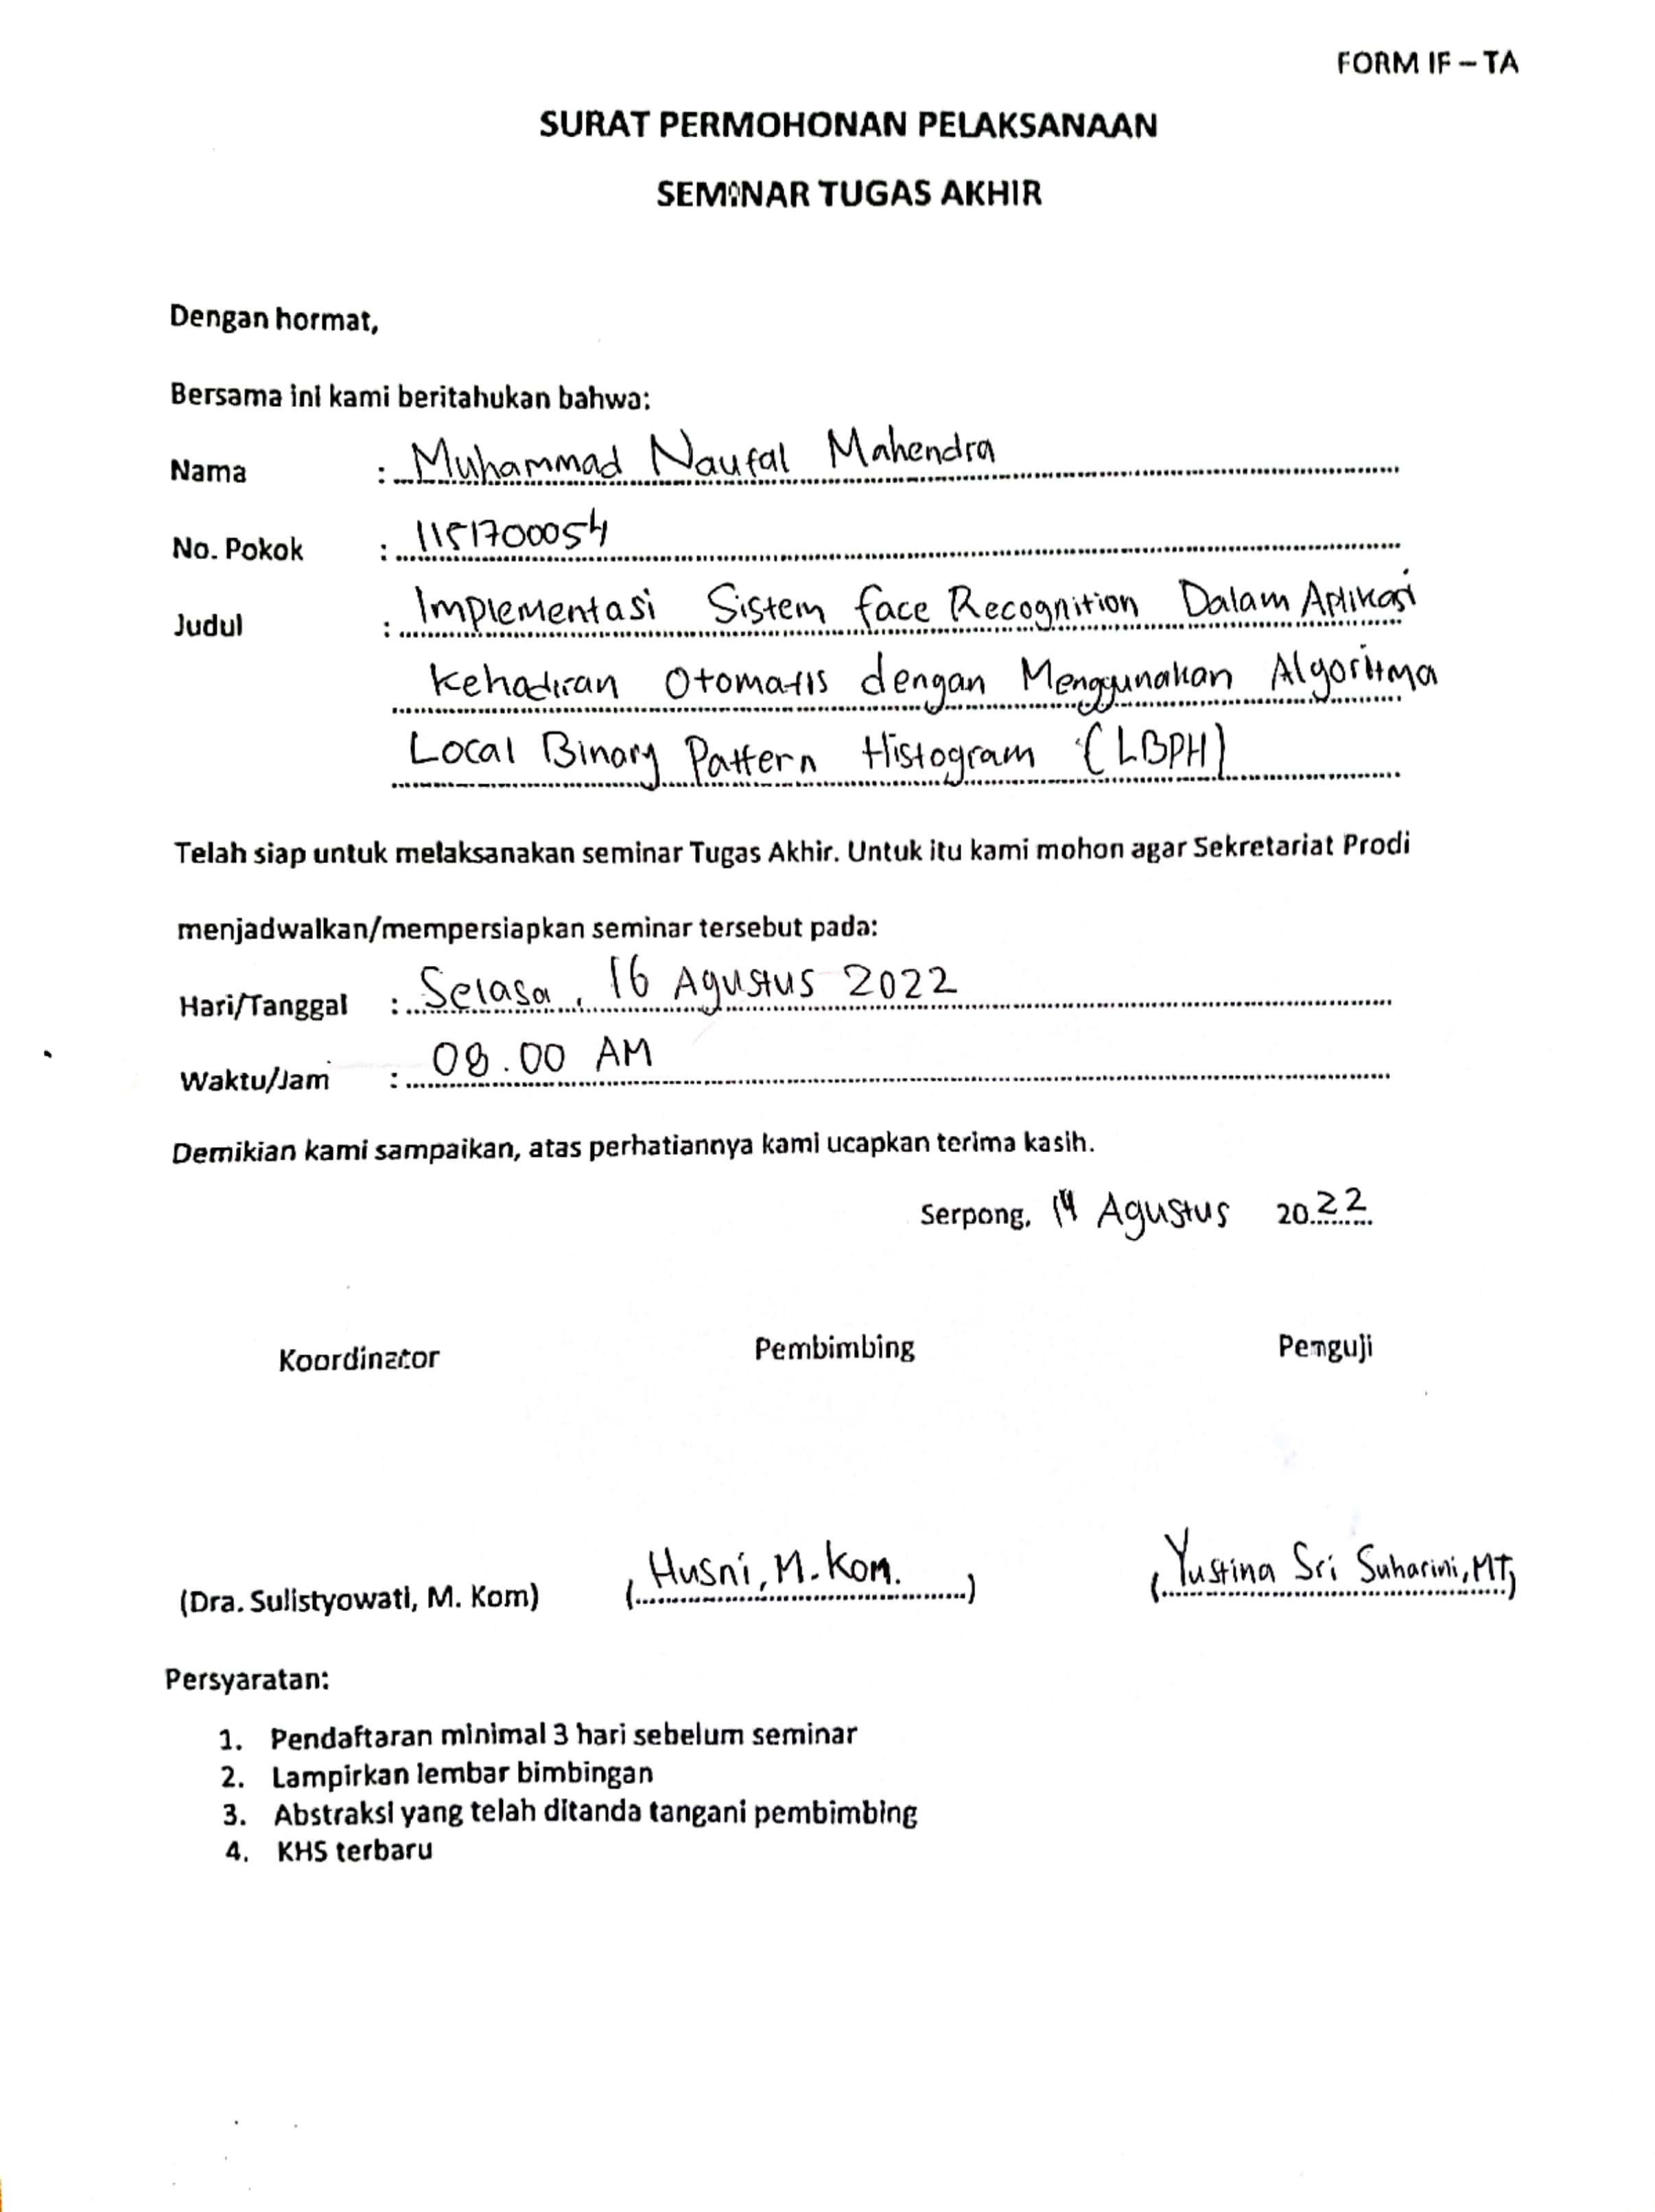 FORM IF – TA
SURAT PERMOHONAN PELAKSANAAN
SEMINAR TUGAS AKHIR
Dengan hormat,
Bersama ini kami beritahukan bahwa:
Nama : Muhammad Naufal Mahendra
No. Pokok : 1151700054
Judul : Implementasi Sistem face Recognition Dalam Aplikasi
kehadiran Otomatis dengan Menggunakan Algoritma
Local Binary Pattern Histogram (LBPH)
Telah siap untuk melaksanakan seminar Tugas Akhir. Untuk itu kami mohon agar Sekretariat Prodi
menjadwalkan/mempersiapkan seminar tersebut pada:
Hari/Tanggal : Selasa, 16 Agustus 2022
Waktu/Jam : 08.00 AM
Demikian kami sampaikan, atas perhatiannya kami ucapkan terima kasih.
Serpong, 14 Agustus 2022
Koordinator Pembimbing Penguji
(Dra. Sulistyowati, M. Kom) (Husni, M.Kom.) (Yustina Sri Suharini, MT)
Persyaratan:
1. Pendaftaran minimal 3 hari sebelum seminar
2. Lampirkan lembar bimbingan
3. Abstraksi yang telah ditanda tangani pembimbing
4. KHS terbaru